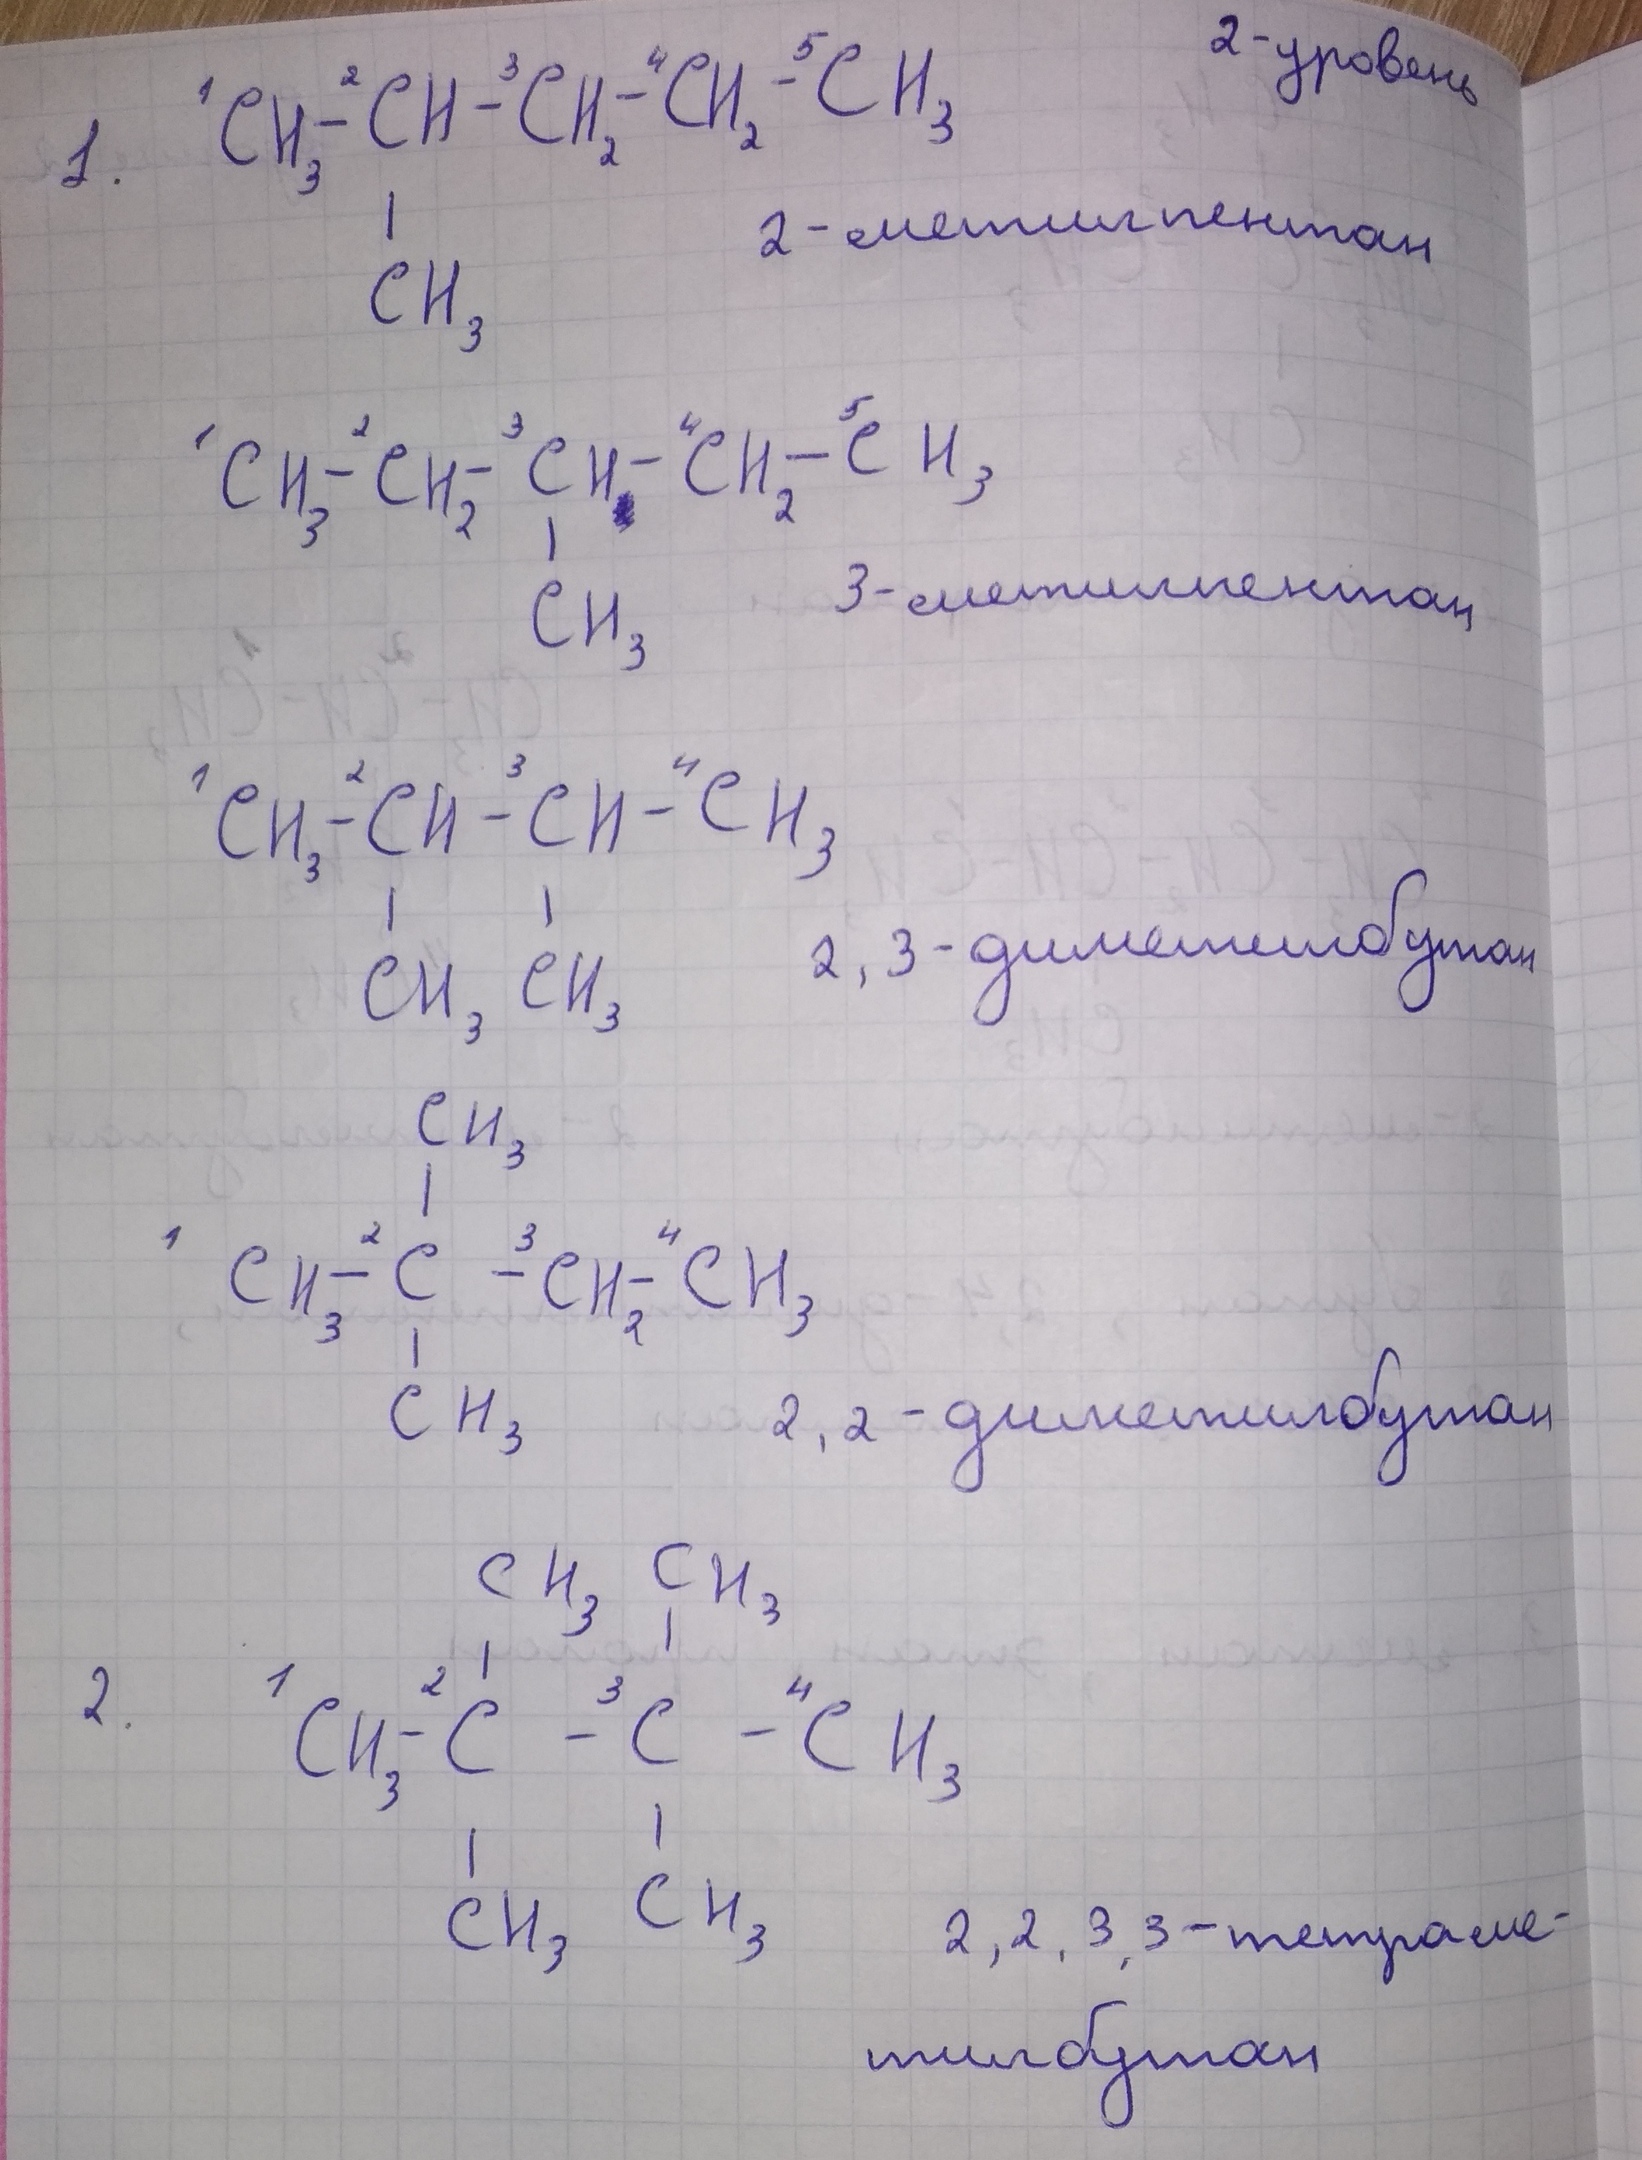 2-уровень
1. ¹CH₃-²CH-³CH₂-⁴CH₂-⁵CH₃
|
CH₃
2-метилпентан
¹CH₃-²CH₂-³CH-⁴CH₂-⁵CH₃
|
CH₃
3-метилпентан
¹CH₃-²CH-³CH-⁴CH₃
| |
CH₃ CH₃
2,3-диметилбутан
CH₃
|
¹CH₃-²C-³CH₂-⁴CH₃
|
CH₃
2,2-диметилбутан
CH₃ CH₃
| |
2. ¹CH₃-²C-³C-⁴CH₃
| |
CH₃ CH₃
2,2,3,3-тетраме-
тилбутан